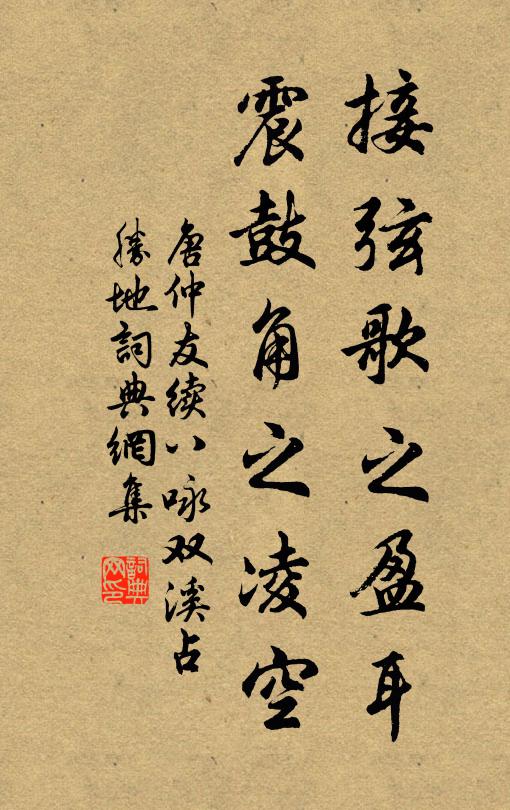 接弦歌之盈耳
震鼓角之凌空
唐仲友续八咏双溪占
勝地詞典網集
詞典网印